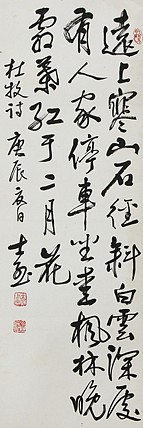 遠上寒山石徑斜白雲深處
有人家停車坐愛楓林晚
霜葉红于二月花
杜牧詩 庚辰夏日